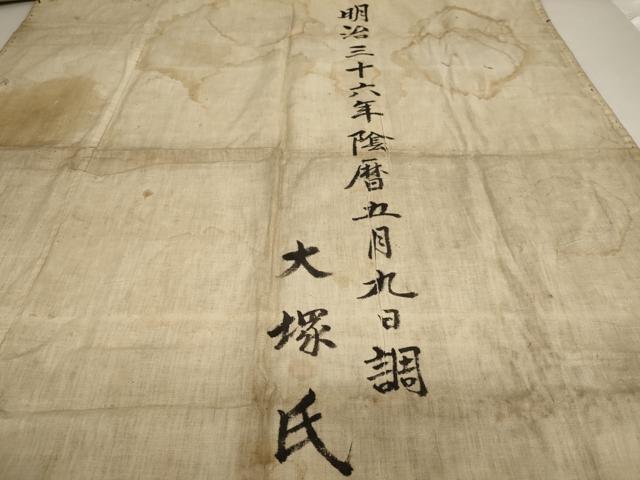 明治三十六年陰暦五月九日調
大塚氏